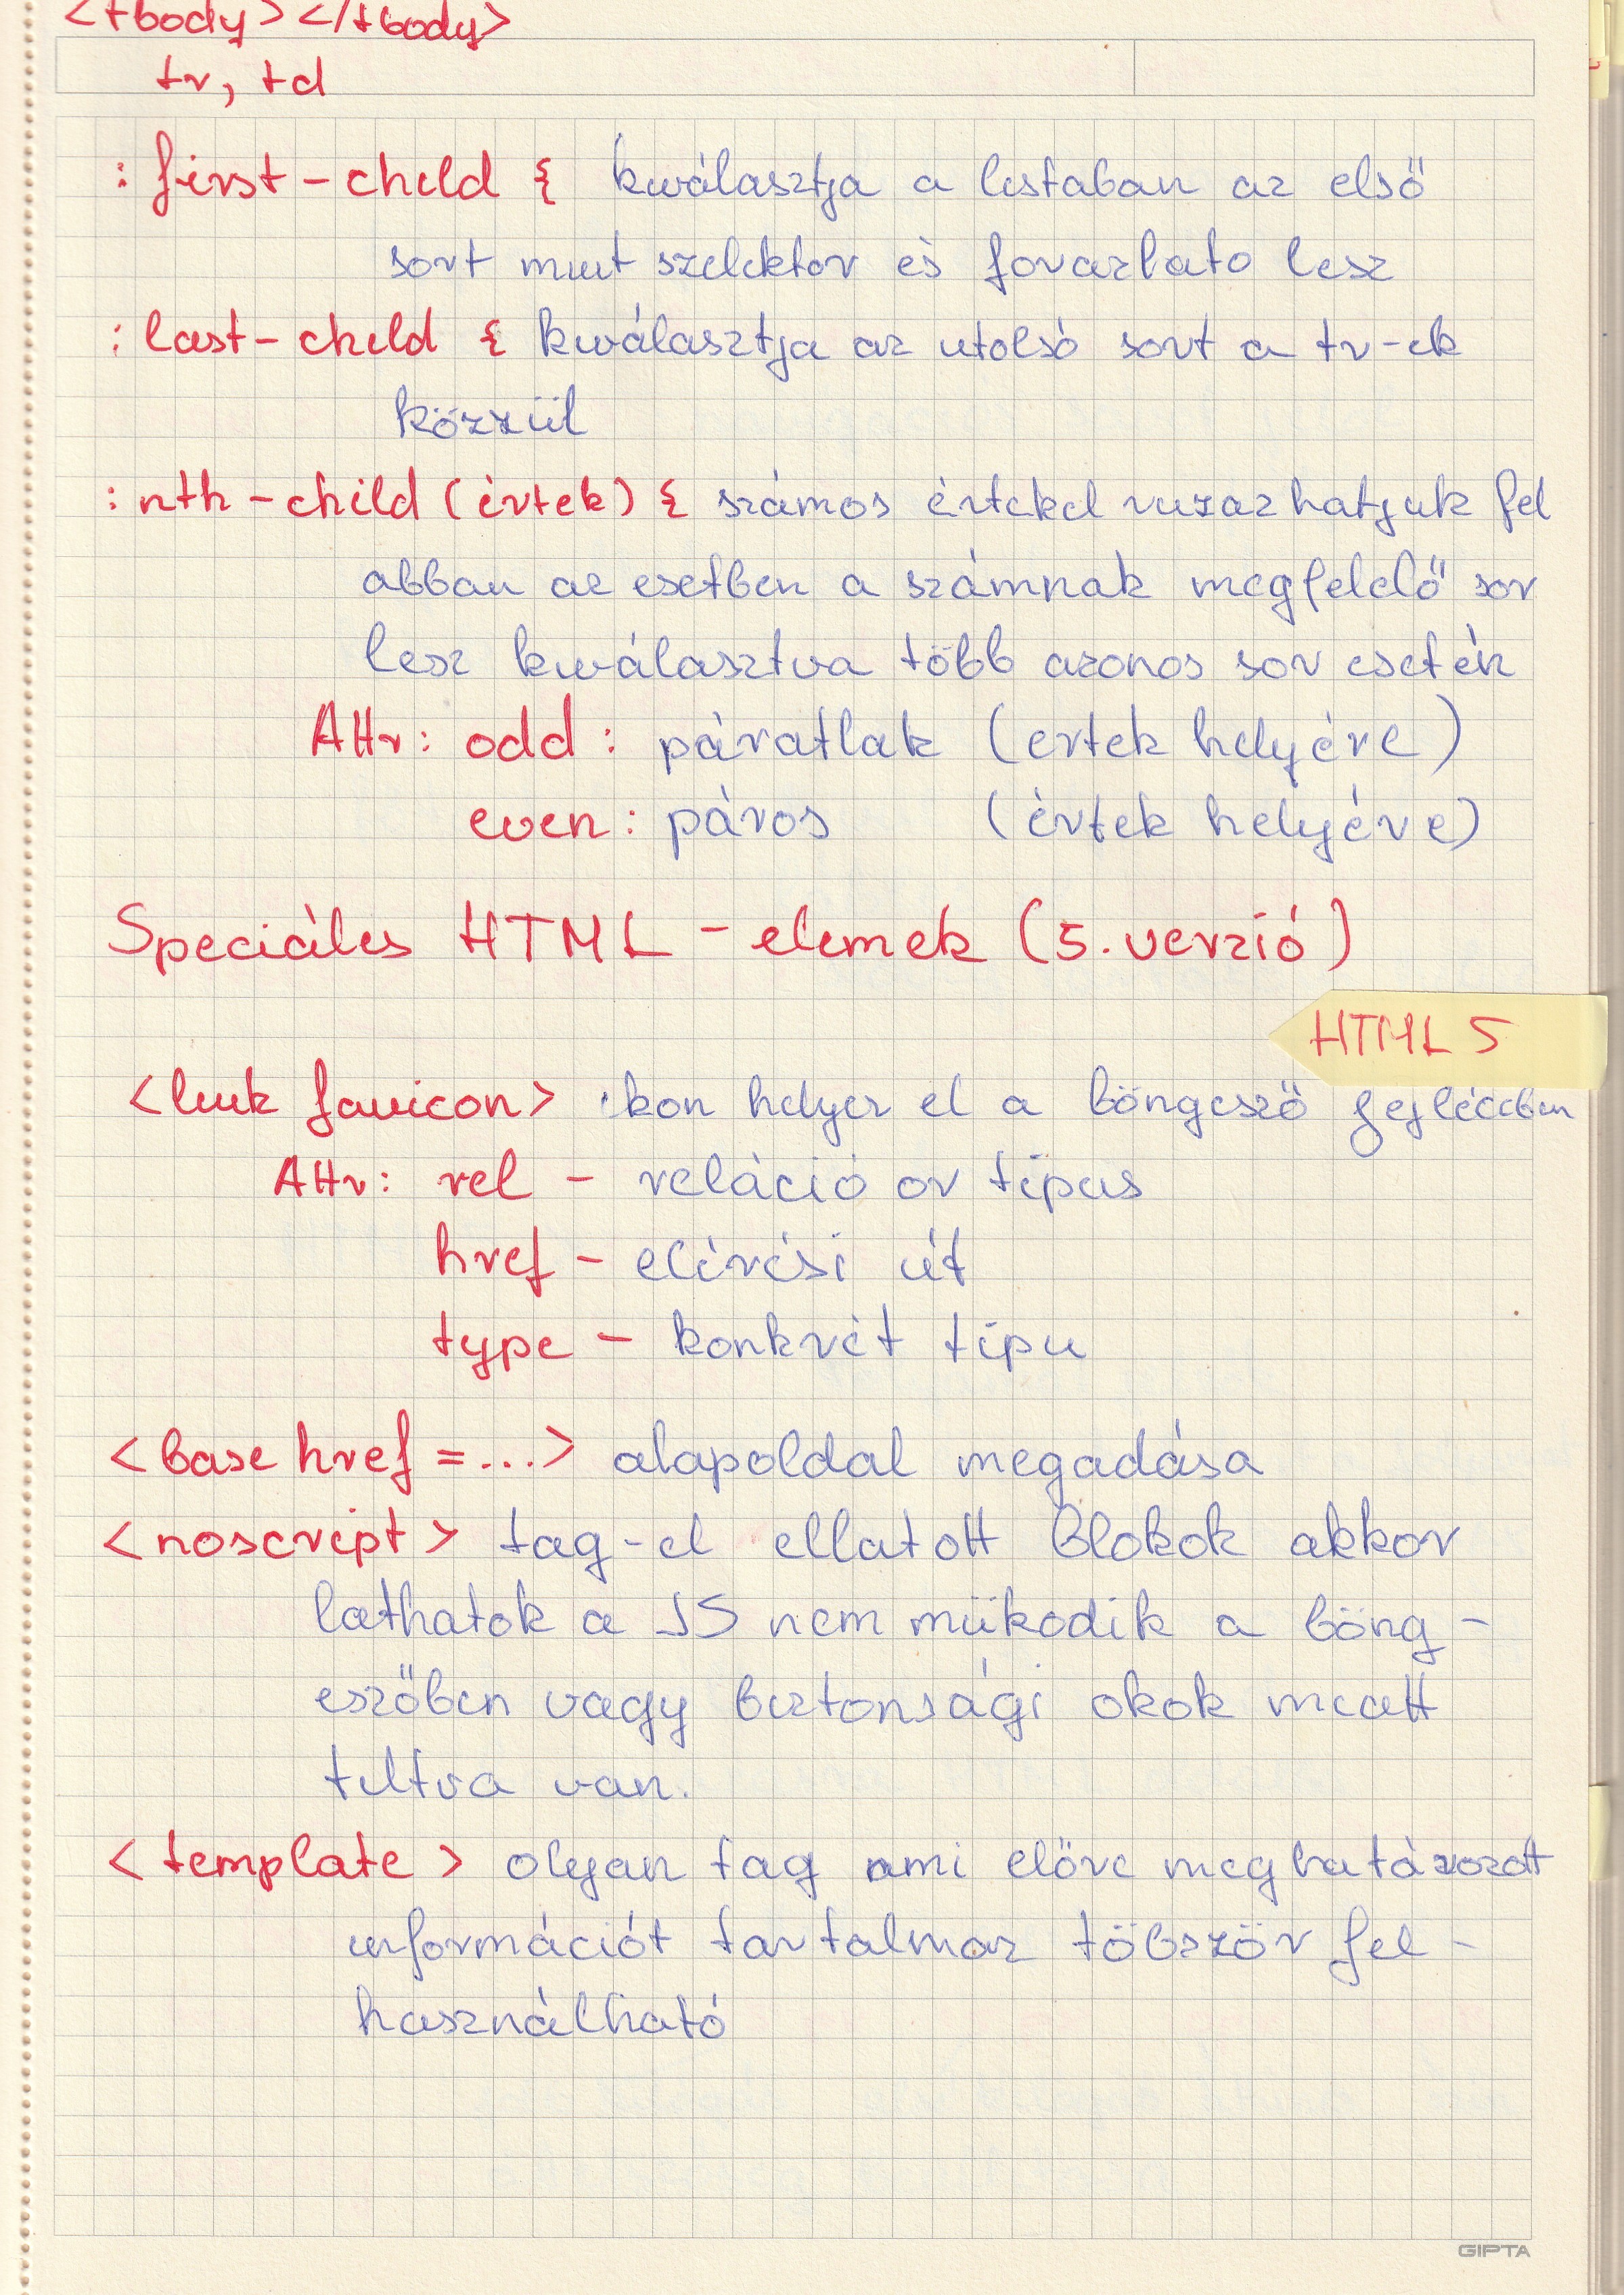 <tbody></tbody>
tr, td
:first-child { kiválasztja a listaban az első
sort mint szelektor és formazhato lesz
:last-child { kiválasztja az utolsó sort a tr-ek
közzül
:nth-child (értek) { számos értekel ruhazhatjuk fel
abban az esetben a számnak megfelelő sor
lesz kiválasztva több azonos sor esetén
Attr: odd: páratlak (ertek helyére)
even: páros (értek helyére)
Speciáles HTML-elemek (5. verzió)
HTML 5
<link favicon> ikon helyez el a böngésző fejlécében
Attr: rel - reláció or típus
href - elérési út
type - konkrét típu
<base href=...> alapoldal megadása
<noscript> tag-el ellatott Blokok akkor
lathatok a JS nem müködik a böng-
eszőben vagy biztonsági okok miatt
tiltva van.
<template> olyan tag ami előre meghatározott
információt tartalmaz töbször fel-
használható
GIPTA